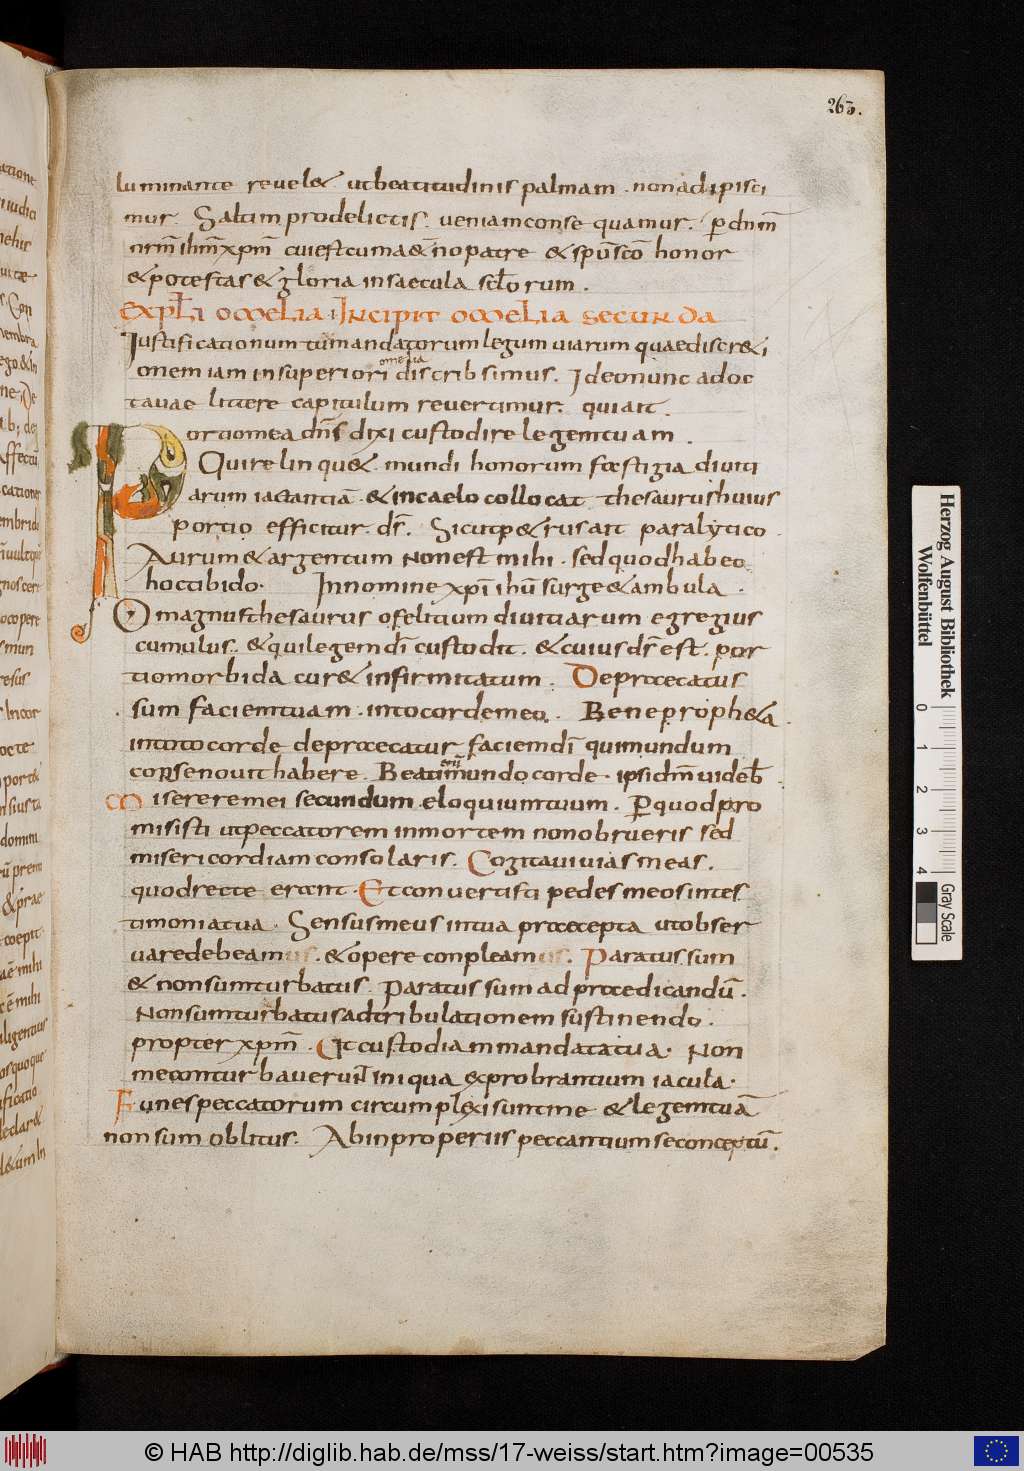 263.
luminante revel& utbeatitudinis palmam . non adipisci
mur. Saltim prodelictis. veniam conse quamur. ꝑ dnm̄
nrm̄ ihm̄ xpm̄ cui est cum aet̄no patre & spu̅ sc̅o honor
& potestas & gloria insaecula scl̅orum.
expl̅i omelia. Incipit omelia secunda
Iustificationum tūmandatorum legum viarum quaediscr&i
onem iam insuperiori omelia discribsimus. Ideonunc adoc
tavae littere capitulum revertimur. quiait.
Portiomea dn̅s dixi custodire legemtuam.
Quirelinqu& mundi honorum fastigia diviti
arum iactantiā. & incaelo collocat thesaurushuius
portio efficitur. ds̅. Sicutp&rus ait paralytico.
Aurum & argentum Non est mihi. sed quod habeo
hoctibido. Innomine xpi̅ ihu̅ surge & ambula.
O magnusthesaurus ofelitium divitiarum egregius
cumulus. & quilegem di̅ custodit. & cuius ds̅ est. por
tiomorbida cur& infirmitatum. Deprecatus
sum faciemtuam. intocordemeo. Bene proph&a
intotocorde deprecatur faciem di̅ quimundum
cor senovit habere. Beati enī mundo corde. ipsi dm̅ videb̅
Miserere mei secundum eloquiumtuum. Ꝑquod pro
misisti utpeccatorem inmortem nonobrueris sed
misericordiam consolaris. Cogitavi vias meas.
quodrecte erant. Et convertisti pedes meos intes
timoniatua. Sensus meus intua precepta utobser
varedebeamus. & opere conpleamus. Paratus sum
& nonsumturbatus. Paratus sum ad predicandū.
Nonsumturbatus adtribulationem sustinendo.
propter xpm̅. Ut custodiam mandatatua. Non
meconturbaverunt iniqua exprobrantium iacula.
Funes peccatorum circumplexi suntme & legemtuā
non sum oblitus. Ab inproperiis peccantium seconceptū.
Herzog August Bibliothek
Wolfenbüttel
0 1 2 3 4
Gray Scale
© HAB http://diglib.hab.de/mss/17-weiss/start.htm?image=00535